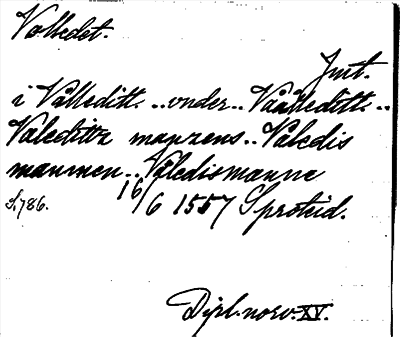 Valledet.
Jmt.
i Vålleditt.. under.. Våålleditt..
Valeditta manzens.. Våledis
mannen.. Våledismanne
S.786. 16/6 1557 Sproteid.
Dipl. norv. XV.